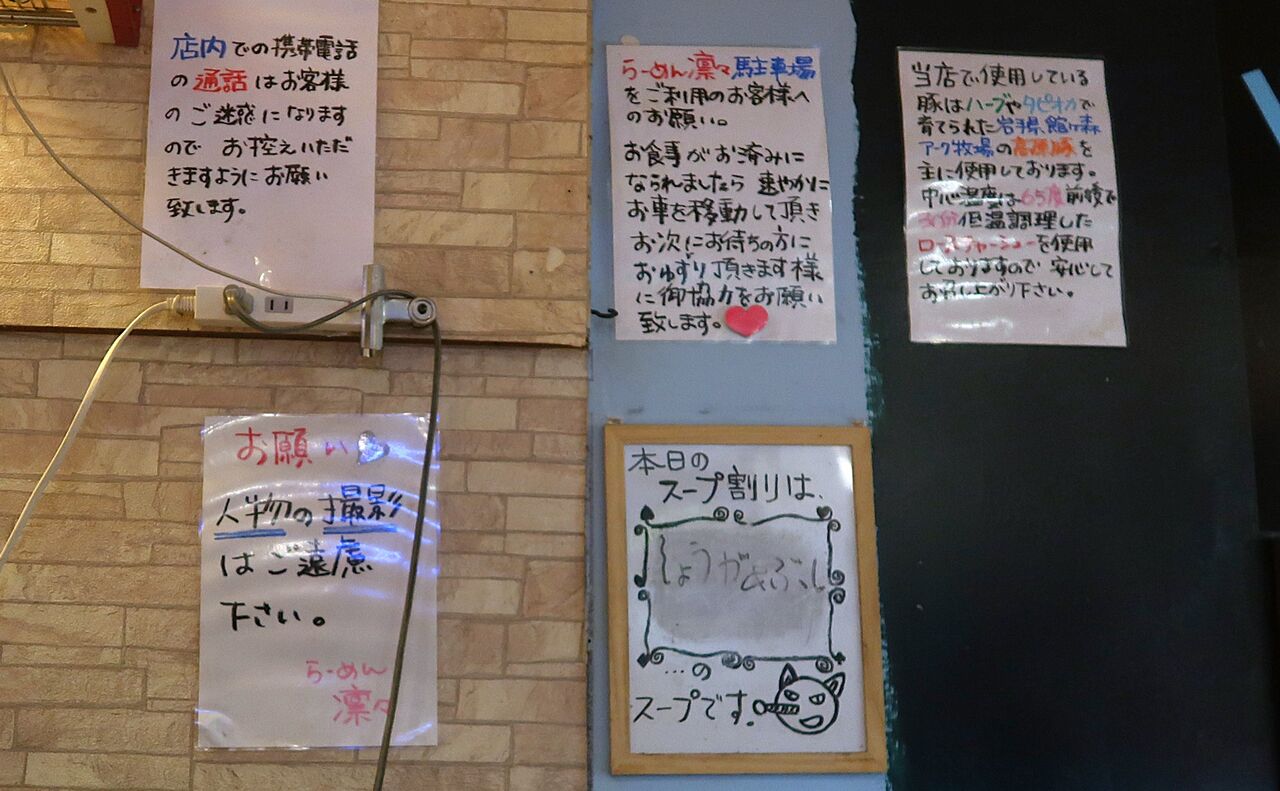 店内での携帯電話
の通話はお客様
のご迷惑になります
ので お控えいただ
きますようにお願い
致します。
らーめん凛々駐車場
をご利用のお客様へ
のお願い。
お食事がお済みに
なられましたら 速やかに
お車を移動して頂き
お次にお待ちの方に
おゆずり頂きます様
に御協力をお願い
致します。
当店で使用している
豚はハーブやタピオカで
育てられた岩手県館ヶ森
アーク牧場の高原豚を
主に使用しております。
中心温度は65度前後で
低温調理した
ロースチャーシューを使用
しておりますので 安心して
お召し上がり下さい。
お願い
人物の撮影
はご遠慮
下さい。
らーめん
凛々
本日の
スープ割りは、
しょうが&ぶし
…の
スープです。